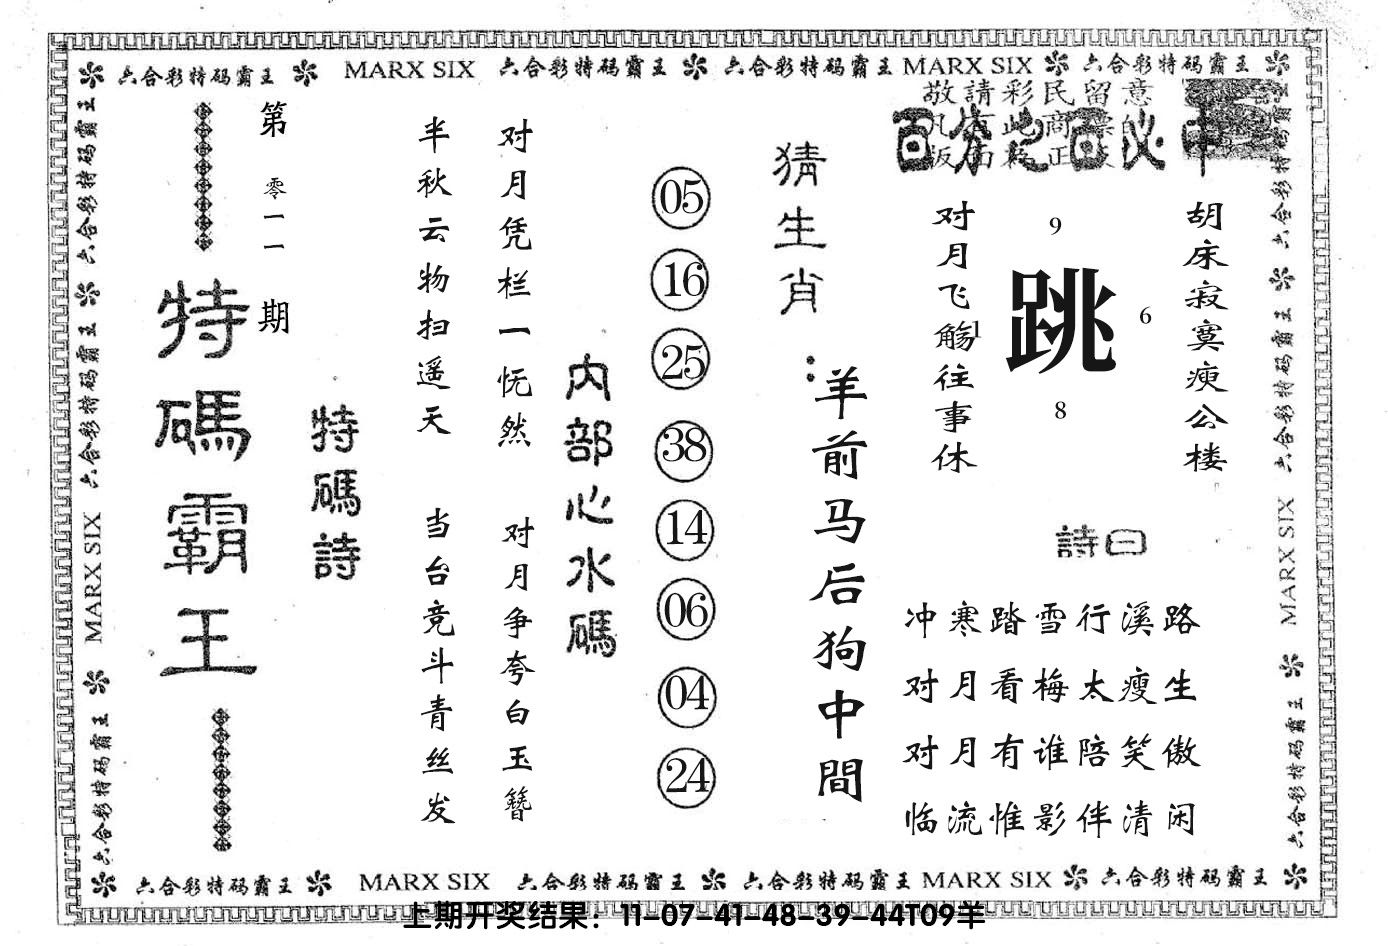 六合彩特码霸王 MARX SIX 六合彩特码霸王 六合彩特码霸王 MARX SIX 六合彩特码霸王
敬請彩民留意
百分之百必中
胡床寂寞庾公楼
9
跳
6
8
1
对月飞觞往事休
詩曰
冲寒踏雪行溪路
对月看梅太瘦生
对月有谁陪笑傲
临流惟影伴清闲
猜生肖:
羊前马后狗中間
05
16
25
38
14
06
04
24
内部心水碼
对月凭栏一怃然
对月争夸白玉簪
半秋云物扫遥天
当台竞斗青丝发
特碼詩
第零一一期
特碼霸王
六合彩特码霸王 六合彩特码霸王 MARX SIX 六合彩特码霸王
六合彩特码霸王 六合彩特码霸王 MARX SIX 六合彩特码霸王
六合彩特码霸王 MARX SIX 六合彩特码霸王 六合彩特码霸王 MARX SIX 六合彩特码霸王
上期开奖结果：11-07-41-48-39-44T09羊